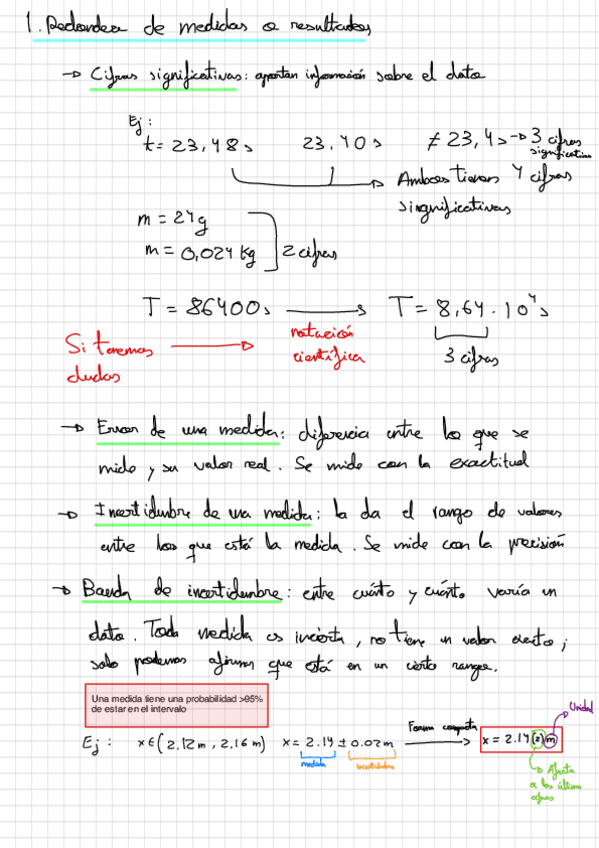 1. Redondeo de medidas o resultados
→ Cifras significativas: aportan información sobre el dato
Ej:
t = 23,48s 23,40s ≠ 23,4s → 3 cifras significativas
Ambos tienen 4 cifras
singnificativas
m = 24g
m = 0,024 kg 2 cifras
T = 86400s → T = 8,64 · 10⁴ s
Si tenemos dudas → notación científica
3 cifras
→ Error de una medida: diferencia entre lo que se
mide y su valor real. Se mide con la exactitud
→ Incertidumbre de una medida: la da el rango de valores
entre los que está la medida. Se mide con la precisión
→ Banda de incertidumbre: entre cuánto y cuánto varía un
dato. Toda medida es incierta, no tiene un valor exacto;
solo podemos afirmar que está en un cierto rango.
Una medida tiene una probabilidad >95%
de estar en el intervalo
Ej: x ∈ (2.12m, 2.16m) x = 2.14 ± 0.02m Forma compacta → x = 2.14(2)m
Unidad
medida incertidumbre
→ Afecta
a las últimas
cifras